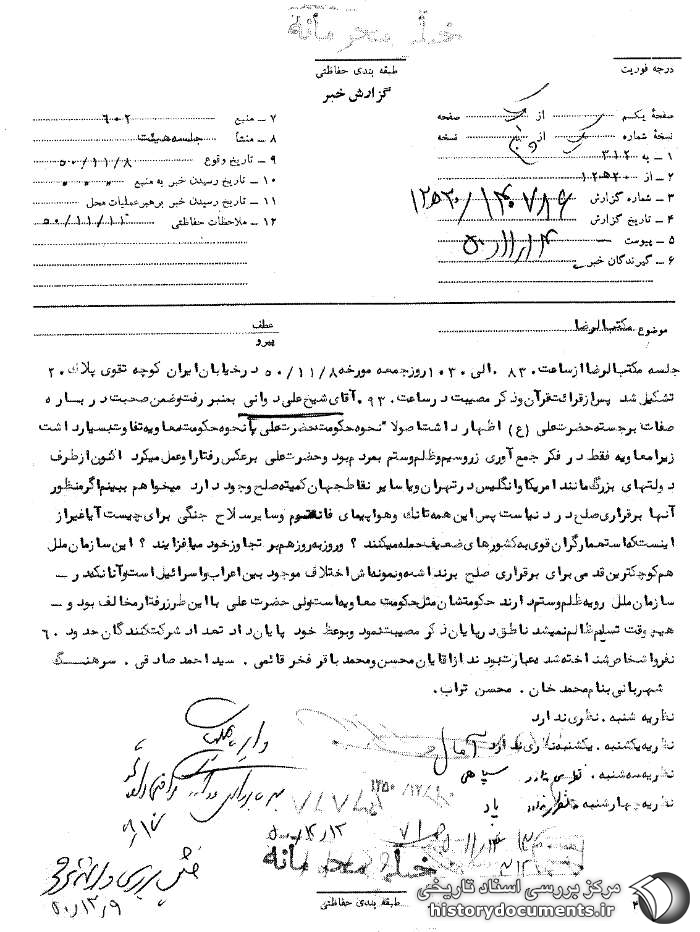 خیلی محرمانه
طبقه بندی حفاظتی
درجه فوریت
گزارش خبر
صفحهٔ یکم از صفحه
نسخهٔ شماره از نسخه
۱ ـ به ۳۱۲
۲ ـ از ۲۰ ه ۱۲
۳ ـ شماره گزارش ۱۲۵۳۰/۱۴۰۷۸۶
۴ ـ تاریخ گزارش ۵۰/۱۱/۱۴
۵ ـ پیوست
۶ ـ گیرندگان خبر
۷ ـ منبع ۶۰۲
۸ ـ منشأ جلسه هیئت
۹ ـ تاریخ وقوع ۵۰/۱۱/۸
۱۰ ـ تاریخ رسیدن خبر به منبع
۱۱ ـ تاریخ رسیدن خبر برهبر عملیات محل
۱۲ ـ ملاحظات حفاظتی ۵۰/۱۱/۱۱
موضوع مکتب الرضا
عطف
پیرو
جلسه مکتب الرضا از ساعت ۸۳۰ الی ۱۰۳۰ روز جمعه مورخه ۵۰/۱۱/۸ در خیابان ایران کوچه تقوی پلاک ۲۰
تشکیل شد پس از قرائت قرآن و ذکر مصیبت در ساعت ۹۳۰ آقای شیخ علی دوانی بمنبر رفت و ضمن صحبت در باره
صفات برجسته حضرت علی (ع) اظهار داشت اصولا "نحوه حکومت حضرت علی با نحوه حکومت معاویه تفاوت بسیار داشت
زیرا معاویه فقط در فکر جمع آوری زر و سیم و ظلم و ستم بمردم بود و حضرت علی برعکس رفتار او عمل میکرد اکنون از طرف
دولتهای بزرگ مانند امریکا و انگلیس در تهران و یا سایر نقاط جهان کمیته صلح وجود دارد میخواهم ببینم اگر منظور
آنها برقراری صلح در دنیاست پس این همه تانک و هواپیمای فانتوم و سایر سلاح جنگی برای چیست آیا غیر از
اینست که استعمارگران قوی به کشورهای ضعیف حمله میکنند ؟ و روز به روز هم بر تجاوز خود میافزایند ؟ این سازمان ملل
هم کوچکترین قدمی برای برقراری صلح برنداشته و نمونه اش اختلاف موجود بین اعراب و اسرائیل است و آنانکه در ـ
سازمان ملل رویه ظلم و ستم دارند حکومتشان مثل حکومت معاویه است ولی حضرت علی با این طرز رفتار مخالف بود و ـ
هیچوقت تسلیم ظالم نمیشد ناطق در پایان ذکر مصیبت نمود و بوعظ خود پایان داد تعداد شرکت کنندگان حدود ۶۰
نفر و اشخاص شناخته شده عبارت بودند از آقایان محسن و محمد باقر فخر قائمی . سید احمد صادقی . سرهنگ
شهربانی بنام محمد خان . محسن تراب .
نظریه شنبه . نظری ندارد
نظریه یکشنبه . یکشنبه نظری ندارد آمال
نظریه سه شنبه . سپاهی
نظریه چهارشنبه یاد
۵۰/۱۲/۹
خیلی محرمانه
طبقه بندی حفاظتی
مرکز بررسی اسناد تاریخی
historydocuments.ir